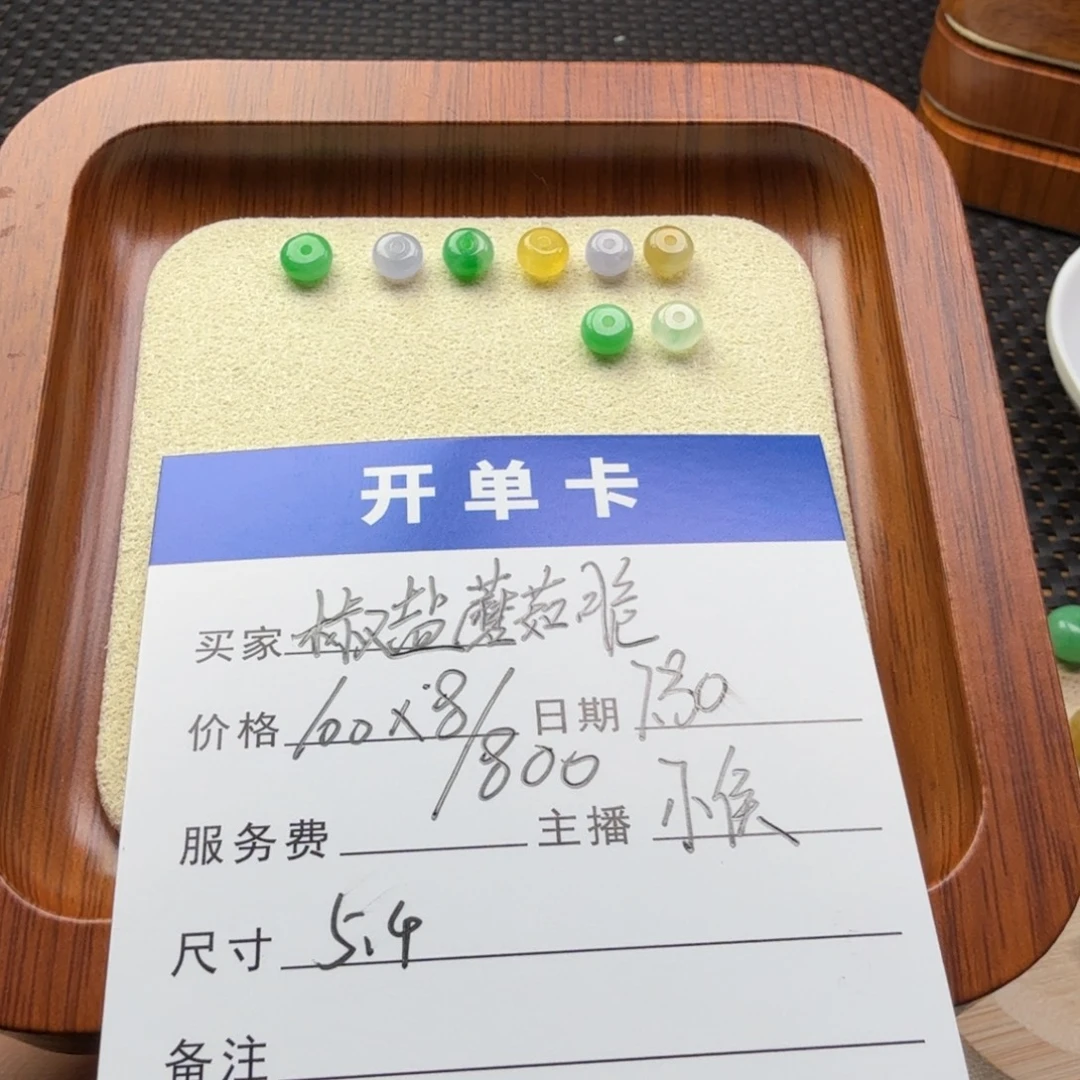 开单卡
买家 椒盐蘑菇脆
价格 100×8/800 日期 7.30
服务费 主播 小侯
尺寸 5.4
备注